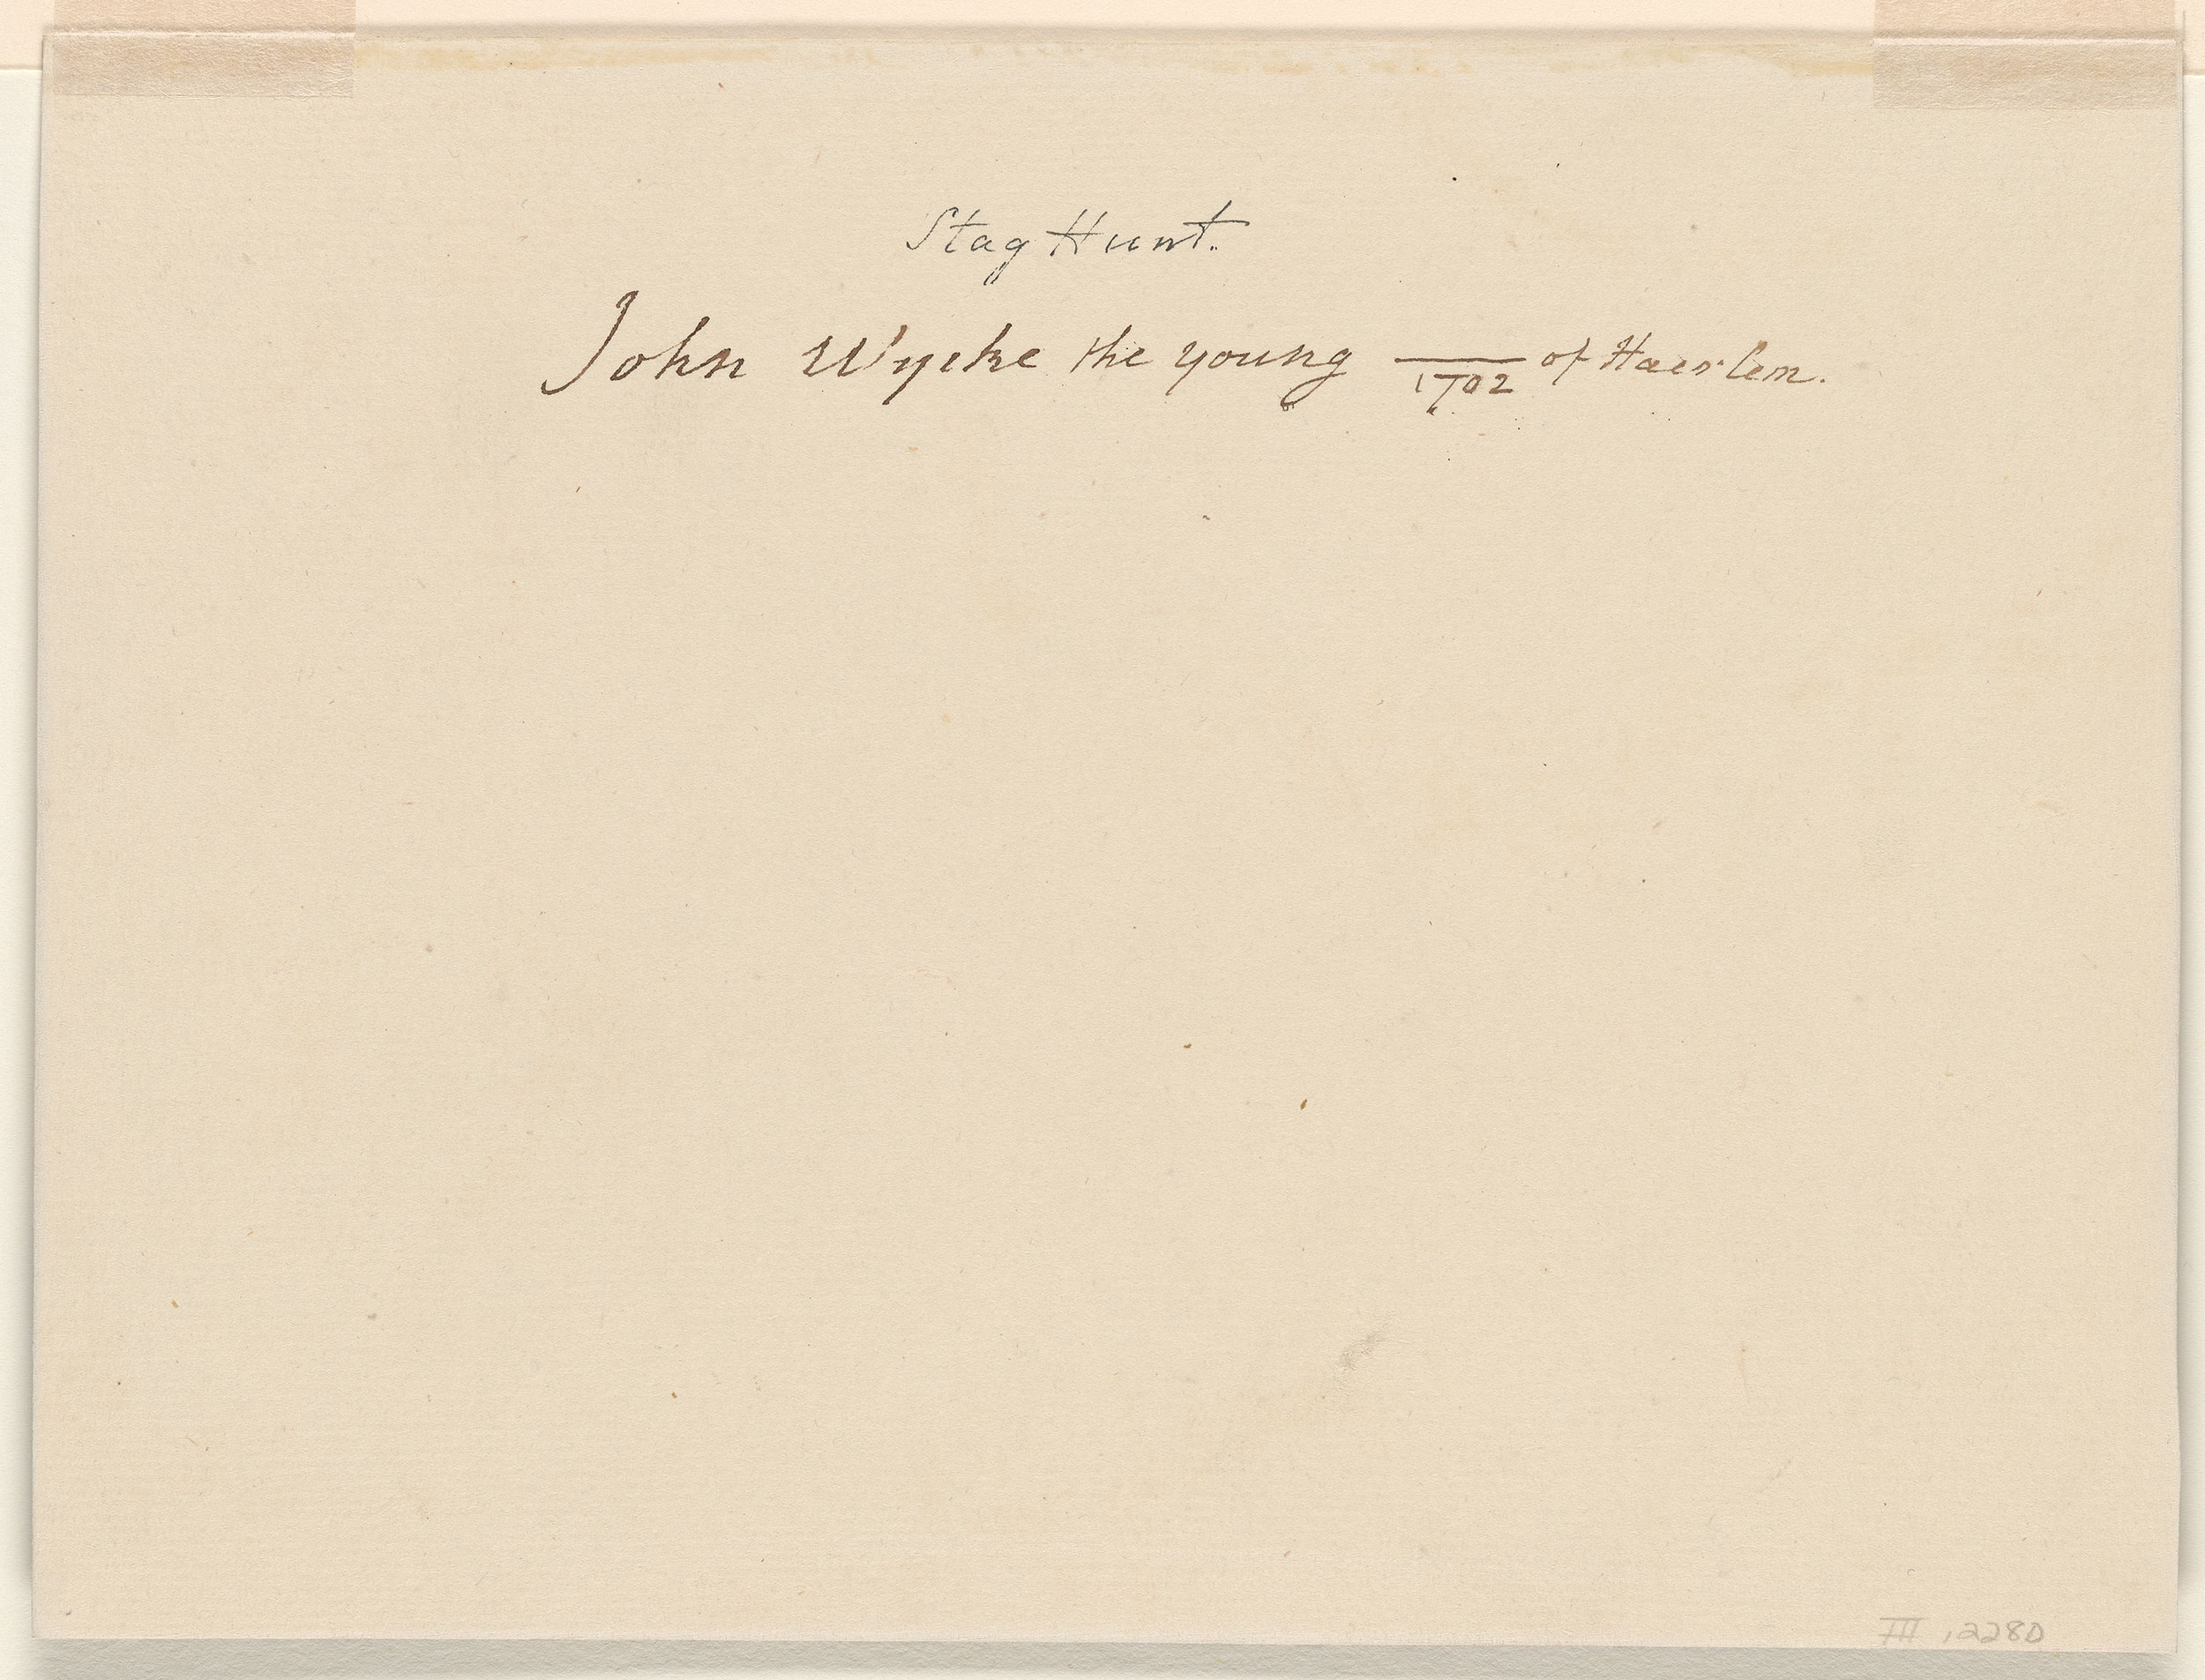 Stag Hunt.
John Wycke the young 1702 of Haerlem.
III, 228D